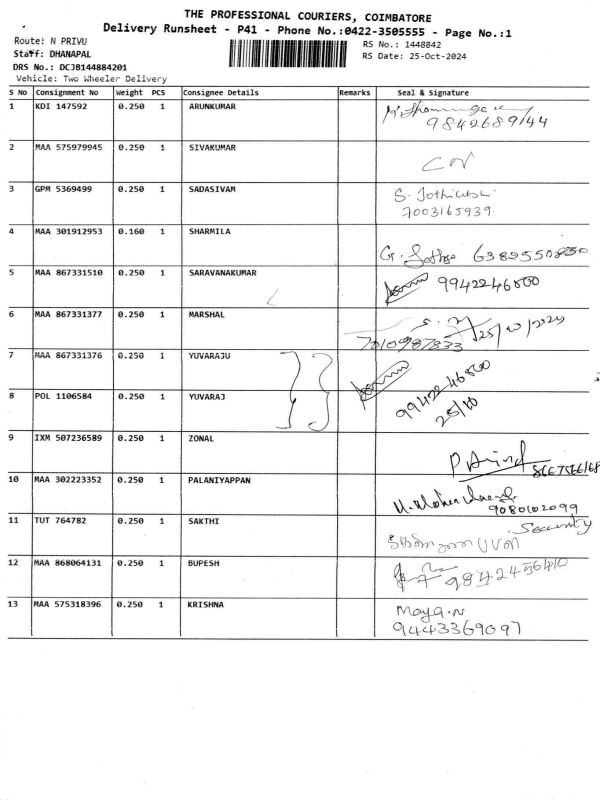 THE PROFESSIONAL COURIERS, COIMBATORE
Delivery Runsheet - P41 - Phone No.:0422-3505555 - Page No.:1
Route: N PRIVU
Staff: DHANAPAL
DRS No.: DCJB144884201
Vehicle: Two Wheeler Delivery
RS No.: 1448842
RS Date: 25-Oct-2024
S No Consignment No Weight PCS Consignee Details Remarks Seal & Signature
1 KDI 147592 0.250 1 ARUNKUMAR
9842689144
2 MAA 575979945 0.250 1 SIVAKUMAR
3 GPM 5369499 0.250 1 SADASIVAM
7003165939
4 MAA 301912953 0.160 1 SHARMILA
6389550830
5 MAA 867331510 0.250 1 SARAVANAKUMAR
9942246800
6 MAA 867331377 0.250 1 MARSHAL
25/10/2024
7010987833
7 MAA 867331376 0.250 1 YUVARAJU
9942246800
8 POL 1106584 0.250 1 YUVARAJ
25/10
9 IXM 507236589 0.250 1 ZONAL
10 MAA 302223352 0.250 1 PALANIYAPPAN
9080102099
11 TUT 764782 0.250 1 SAKTHI
Security
12 MAA 868064131 0.250 1 BUPESH
9842456410
13 MAA 575318396 0.250 1 KRISHNA
Maya.N
9443369097